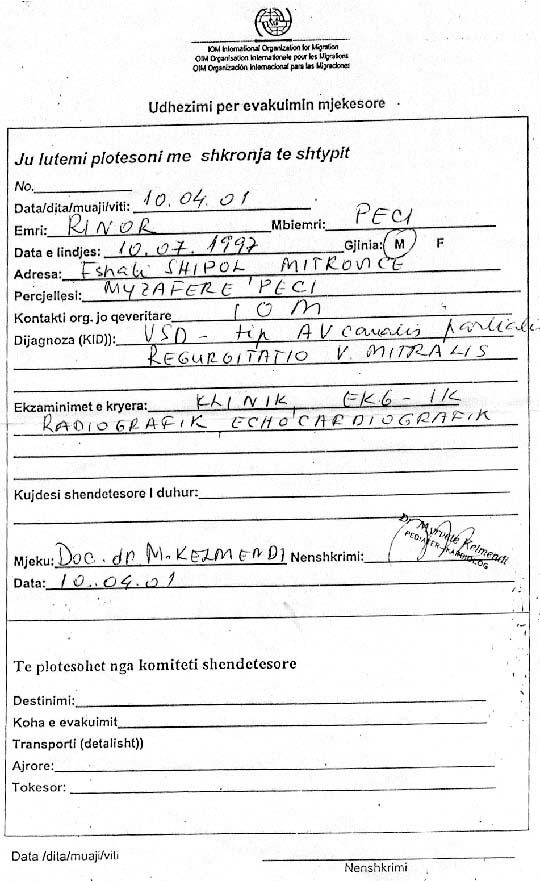 IOM International Organization for Migration
OIM Organisation Internationale pour les Migrations
OIM Organización Internacional para las Migraciones
Udhezimi per evakuimin mjekesore
Ju lutemi plotesoni me shkronja te shtypit
No.
Data/dita/muaji/viti: 10.04.01
Emri: RINOR Mbiemri: PECI
Data e lindjes: 10.07.1997 Gjinia: M F
Adresa: SHIPOL MITROVICE
Percjellesi: MYZAFERE PECI
Kontakti org. jo qeveritare IOM
Dijagnoza (KID)): VSD - tip AV canalis partialis
REGURGITATIO V. MITRALIS
Ekzaminimet e kryera: KLINIK, EKG -
RADIOGRAFIK, ECHOCARDIOGRAFIK
Kujdesi shendetesore I duhur:
Mjeku: Doc. dr. M. KELMENDI Nenshkrimi: Dr. Kelmendi
PEDIATER-KARDIOLOG
Data: 10.04.01
Te plotesohet nga komiteti shendetesore
Destinimi:
Koha e evakuimit
Transporti (detalisht))
Ajrore:
Tokesor:
Data /dita/muaji/viti
Nenshkrimi